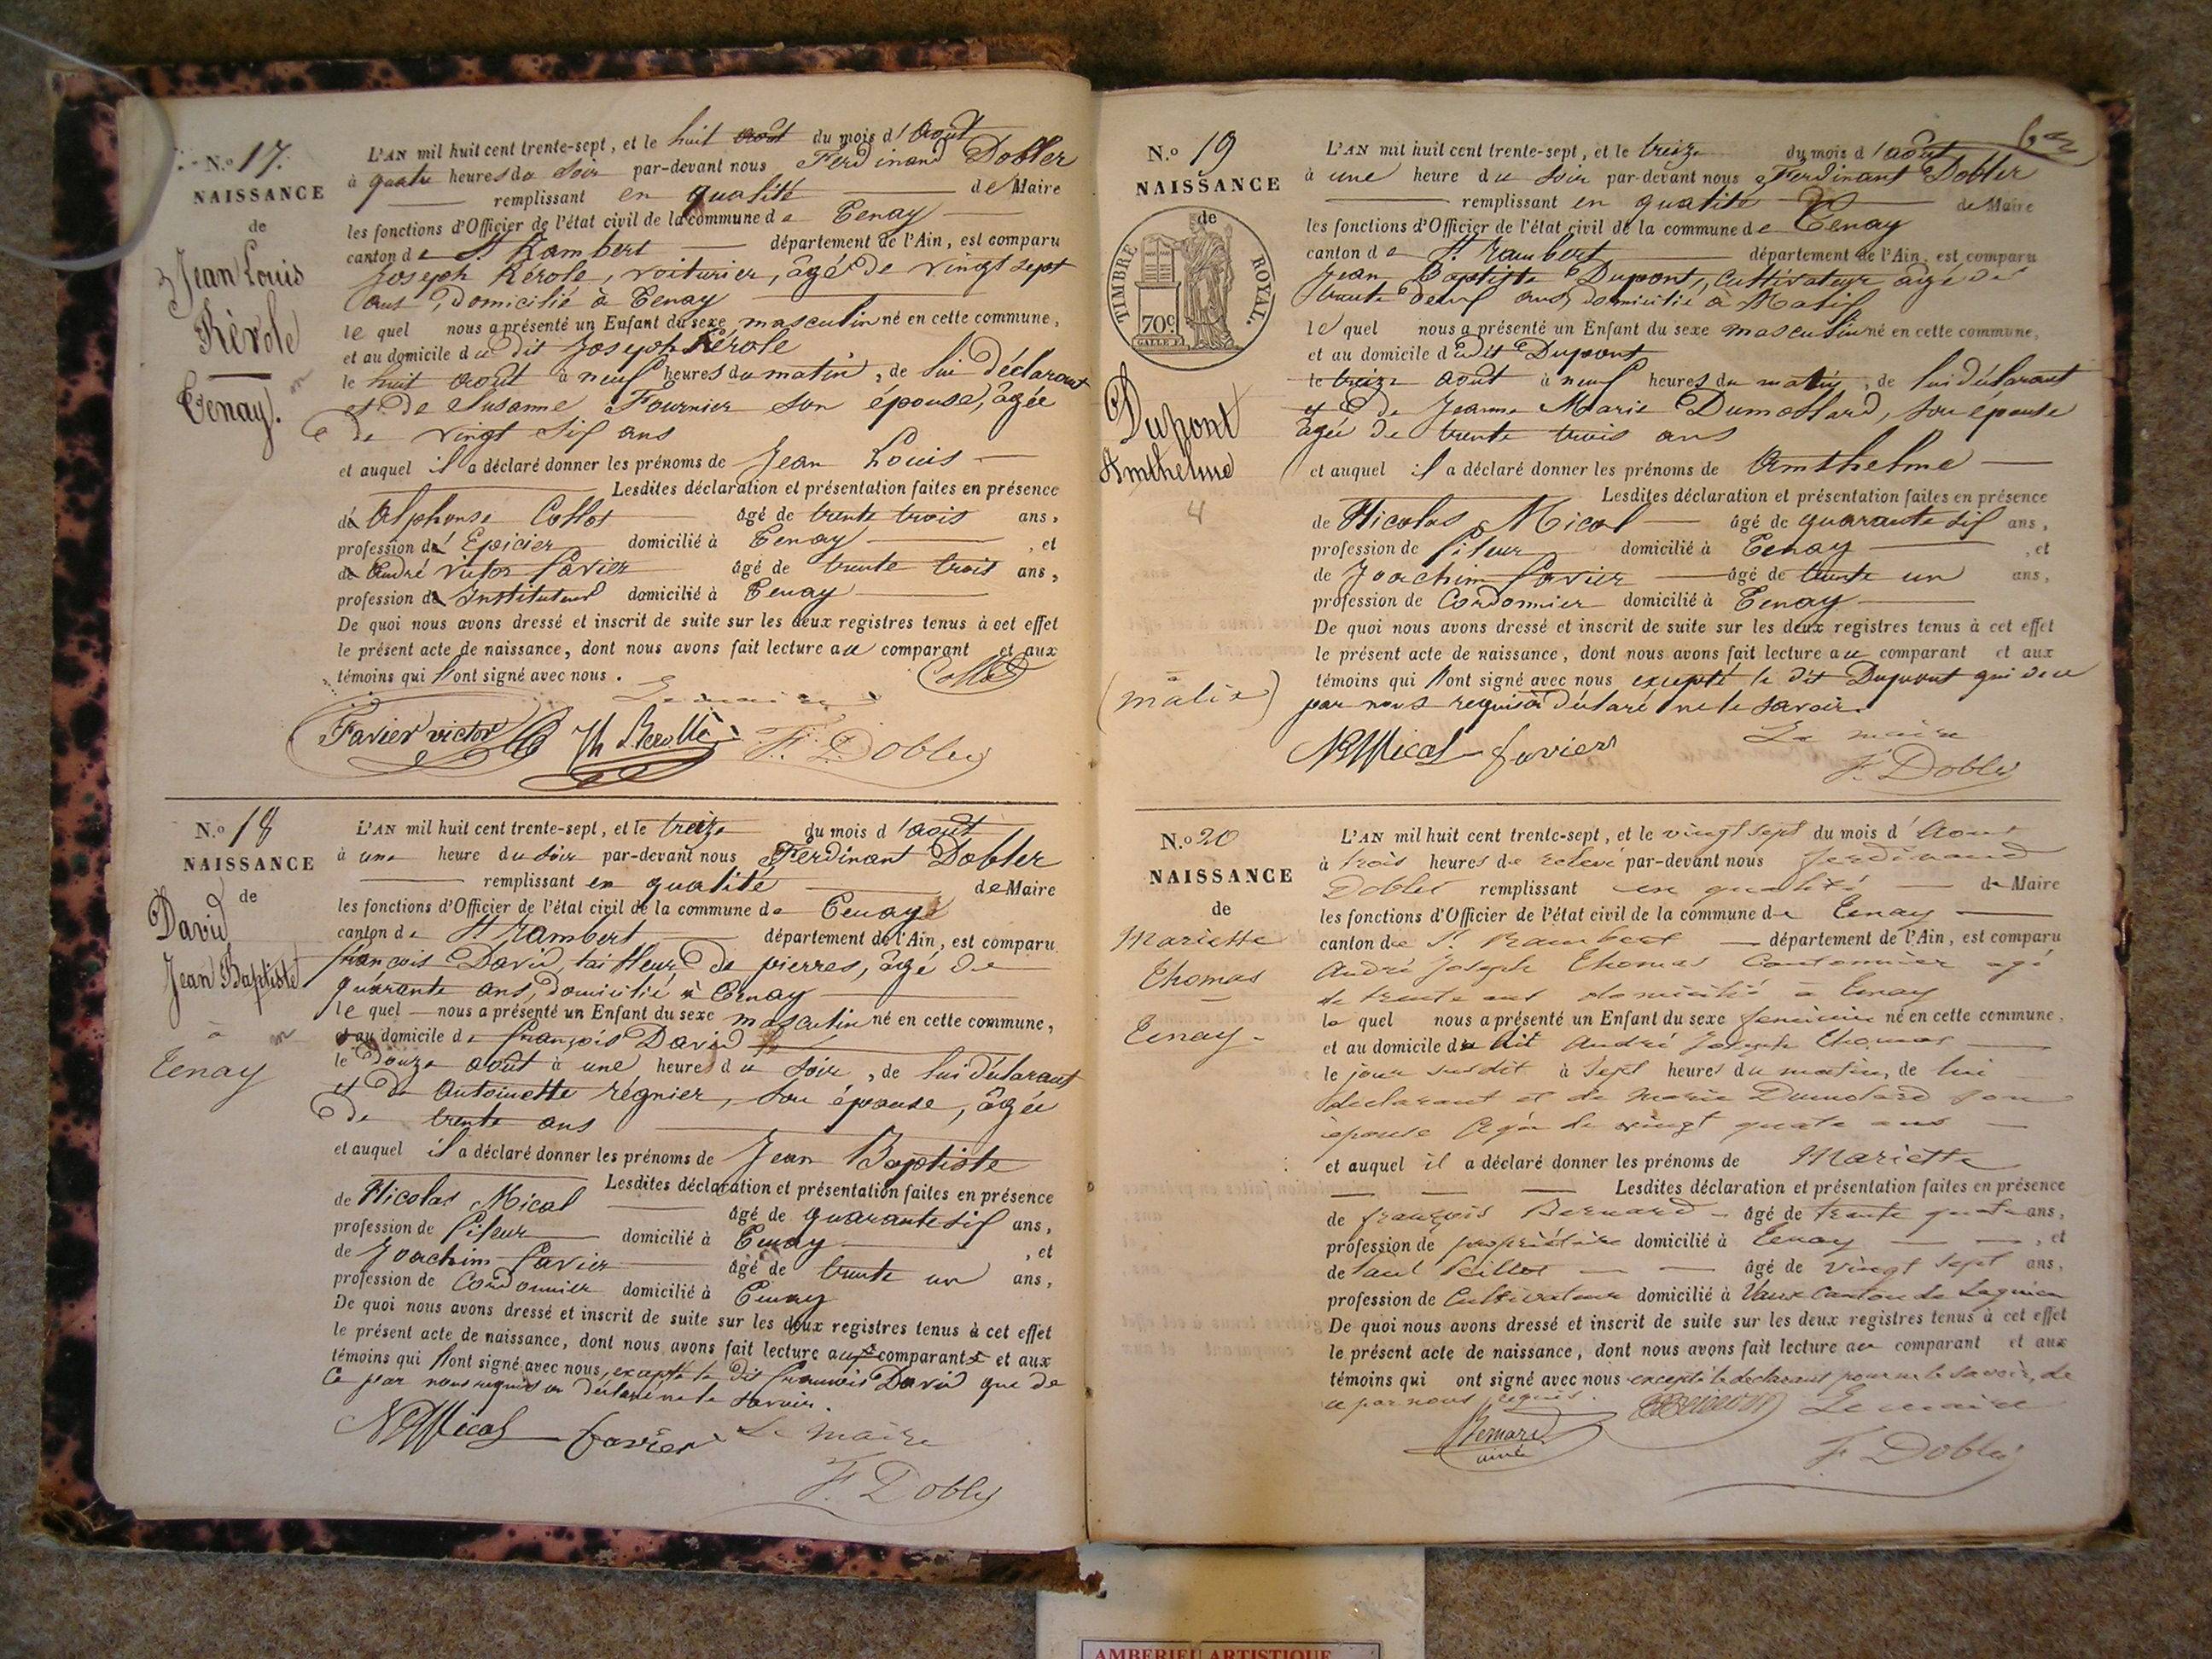 N.º 17.
NAISSANCE
de
Jean Louis
Rérole
Tenay.
L'AN mil huit cent trente-sept, et le huit août du mois d'Août
à quatre heures du soir par-devant nous Ferdinand Dobler
remplissant en qualité de Maire
les fonctions d'Officier de l'état civil de la commune de Tenay
canton de St. Rambert département de l'Ain, est comparu
Joseph Rérole, voiturier, âgé de vingt sept
ans, domicilié à Tenay
le quel nous a présenté un Enfant du sexe masculin né en cette commune,
et au domicile du dit Joseph Rérole
le huit août à neuf heures du matin, de lui déclarant
et de Susanne Fournier son épouse, âgée
de vingt six ans
et auquel il a déclaré donner les prénoms de Jean Louis
Lesdites déclaration et présentation faites en présence
de Alphonse Collot âgé de trente trois ans,
profession d'Epicier domicilié à Tenay, et
de André victor favier âgé de trente trois ans,
profession d'Instituteur domicilié à Tenay
De quoi nous avons dressé et inscrit de suite sur les deux registres tenus à cet effet
le présent acte de naissance, dont nous avons fait lecture au comparant et aux
témoins qui l'ont signé avec nous.
Collot
Le maire
Favier victor Jh Rerolle F. Dobler
N.º 18
NAISSANCE
de
David
Jean Baptiste
à
Tenay
L'AN mil huit cent trente-sept, et le treize du mois d'août
à une heure du soir par-devant nous Ferdinant Dobler
remplissant en qualité de Maire
les fonctions d'Officier de l'état civil de la commune de Tenay
canton de St rambert département de l'Ain, est comparu
françois David, tailleur de pierres, âgé de
quarante ans, domicilié à Tenay
le quel nous a présenté un Enfant du sexe masculin né en cette commune,
et au domicile de françois David
le douze août à une heure du soir, de lui déclarant
et de Antoinette régnier, son épouse, âgée
de trente ans
et auquel il a déclaré donner les prénoms de Jean Baptiste
Lesdites déclaration et présentation faites en présence
de Nicolas Mical âgé de quarante six ans,
profession de fileur domicilié à Tenay, et
de Joachim favier âgé de trente un ans,
profession de Cordonnier domicilié à Tenay
De quoi nous avons dressé et inscrit de suite sur les deux registres tenus à cet effet
le présent acte de naissance, dont nous avons fait lecture aux comparants et aux
témoins qui l'ont signé avec nous, excepté le dit françois David que de
ce par nous requis a déclaré ne le savoir.
N Mical favier Le maire
F. Dobler
N.º 19
NAISSANCE
de
TIMBRE ROYAL.
70c
Dupont
Amthelme
4
(malix)
L'AN mil huit cent trente-sept, et le treize du mois d'août
à une heure du soir par-devant nous Ferdinant Dobler
remplissant en qualité de Maire
les fonctions d'Officier de l'état civil de la commune de Tenay
canton de St. rambert département de l'Ain, est comparu
Jean Baptiste Dupont, Cultivateur âgé de
trente neuf ans, domicilié à Malix
le quel nous a présenté un Enfant du sexe masculin né en cette commune,
et au domicile dudit Dupont
le treize août à neuf heures du matin, de lui déclarant
et de Jeanne Marie Dumollard, son épouse
âgée de trente trois ans
et auquel il a déclaré donner les prénoms de Amthelme
Lesdites déclaration et présentation faites en présence
de Nicolas Mical âgé de quarante six ans,
profession de fileur domicilié à Tenay, et
de Joachim favier âgé de trente un ans,
profession de Cordonnier domicilié à Tenay
De quoi nous avons dressé et inscrit de suite sur les deux registres tenus à cet effet
le présent acte de naissance, dont nous avons fait lecture au comparant et aux
témoins qui l'ont signé avec nous excepté le dit Dupont qui de ce
par nous requis a déclaré ne le savoir.
N Mical favier Le maire
F. Dobler
N.º 20
NAISSANCE
de
Mariette
Thomas
Tenay
L'AN mil huit cent trente-sept, et le vingt sept du mois d'Aout
à trois heures de relevé par-devant nous ferdinand
Dobler remplissant en qualité de Maire
les fonctions d'Officier de l'état civil de la commune de Tenay
canton de St. Rambert département de l'Ain, est comparu
André Joseph Thomas Cantonnier agé
de trente ans domicilié à Tenay
le quel nous a présenté un Enfant du sexe feminin né en cette commune,
et au domicile du dit André Joseph Thomas
le jour susdit à sept heures du matin, de lui
déclarant et de marie Dumolard son
épouse agée de vingt quatre ans
et auquel il a déclaré donner les prénoms de Mariette
Lesdites déclaration et présentation faites en présence
de françois Bernard âgé de trente quatre ans,
profession de propriétaire domicilié à Tenay, et
de Paul âgé de vingt sept ans,
profession de Cultivateur domicilié à Vaux Canton de Lagnieu
De quoi nous avons dressé et inscrit de suite sur les deux registres tenus à cet effet
le présent acte de naissance, dont nous avons fait lecture au comparant et aux
témoins qui ont signé avec nous excepté le déclarant pour ne le savoir, de
ce par nous requis.
Le maire
Bernard
ainé
F. Dobler
AMBERIEU ARTISTIQUE